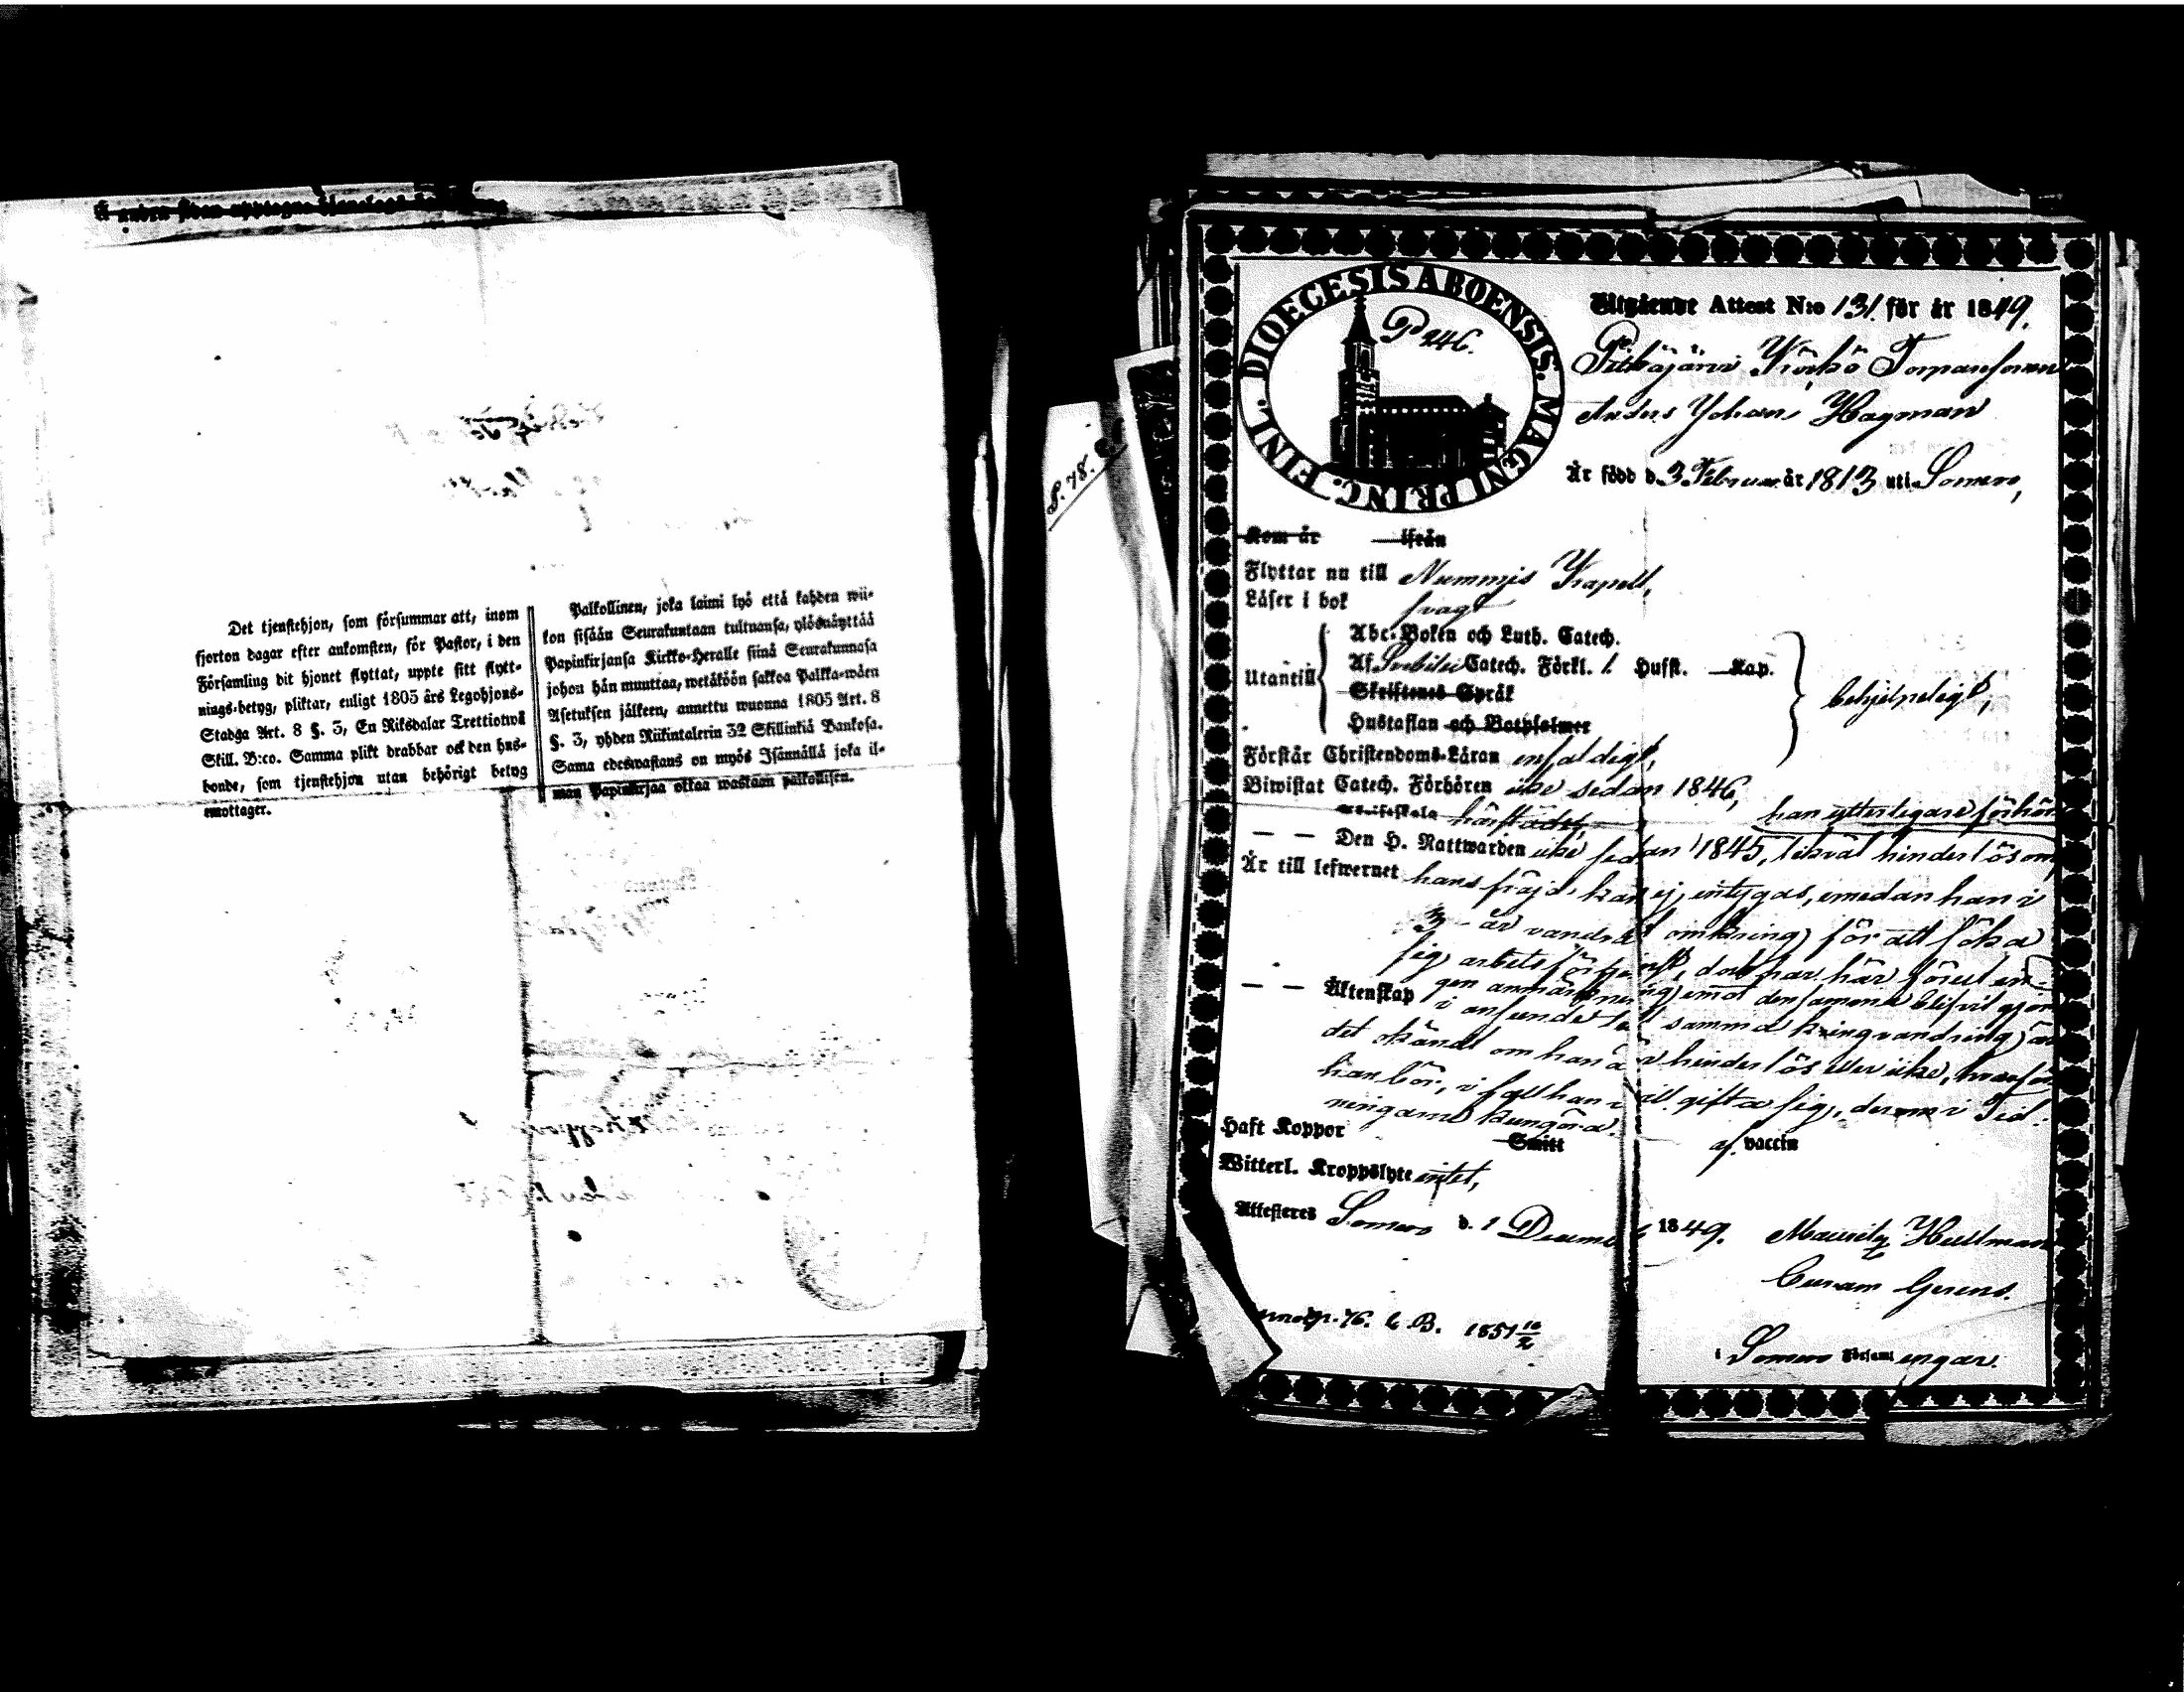 Det tjenstehjon, som försummar att, inom
fjorton dagar efter ankomsten, för Pastor, i den
Församling dit hjonet flyttat, uppte sitt flytt-
nings-betyg, pliktar, enligt 1805 års Legohjons-
Stadga Art. 8 §. 3, En Riksdalar Trettiotwå
Skill. B:co. Samma plikt drabbar ock den hus-
bonde, som tjenstehjon utan behörigt betyg
emottager.
Palkollinen, joka laimi lyö että kahden wii-
kon sisään Seurakuntaan tultuansa, ylösnäyttää
Papinkirjansa Kirkko-Heralle siinä Seurakunnasa
johon hän muuttaa, wetäköön sakkoa Palkka-wäen
Asetuksen jälkeen, annettu wuonna 1805 Art. 8
§. 3, yhden Riikintalerin 32 Skillinkiä Bankosa.
Sama edeswastaus on myös Isännällä joka il-
man Papinkirjaa ottaa wastaan palkollisen.
S. 78.
DIOECESIS ABOENSIS. MAGNI PRINC. FINL.
P 246.
Utgående Attest N:o 131. för år 1849.
Pitkäjärvi Körkö Torparesonen
Anders Johan Hagman
Är född d. 3 Februar. år 1813 uti Somero,
Kom år ifrån
Flyttar nu till Nummis Kapell,
Läser i bok svagt
Utantill
Abc-Boken och Luth. Catech.
Af Svebilii Catech. Förkl. 1. Hufst. Kap.
Skriftenes Språk
Hustaflan och Botpsalmer
behjelpeligt,
Förstår Christendoms-Läran enfaldigt,
Biwistat Catech. Förhören icke sedan 1846,
härstädes,
han ytterligare förhör
— — Den H. Nattwarden icke sedan 1845, likväl hinderlös om
Är till lefwernet hans fräjd kan ej intygas, emedan han i
3 år vandrat omkring för att söka
sig arbetsförtjenst, dock har här förut in-
gen anmärkning emot densamma blifvit gjord
— — Äktenskap i anseende till samma kringvandring är
det okändt om han är hinderlös eller icke, hvarför
han bör, i fall han vill gifta sig, derom i Tid-
ningarne kungöra.
Haft Koppor Smitt af vaccin
Witterl. Kroppslyte intet,
Attesteres Somero d. 1 December 1849. Mauritz Hellman
Curam Gerens.
p. 76. C. B. 1851 10/2
i Somero Församlingar.